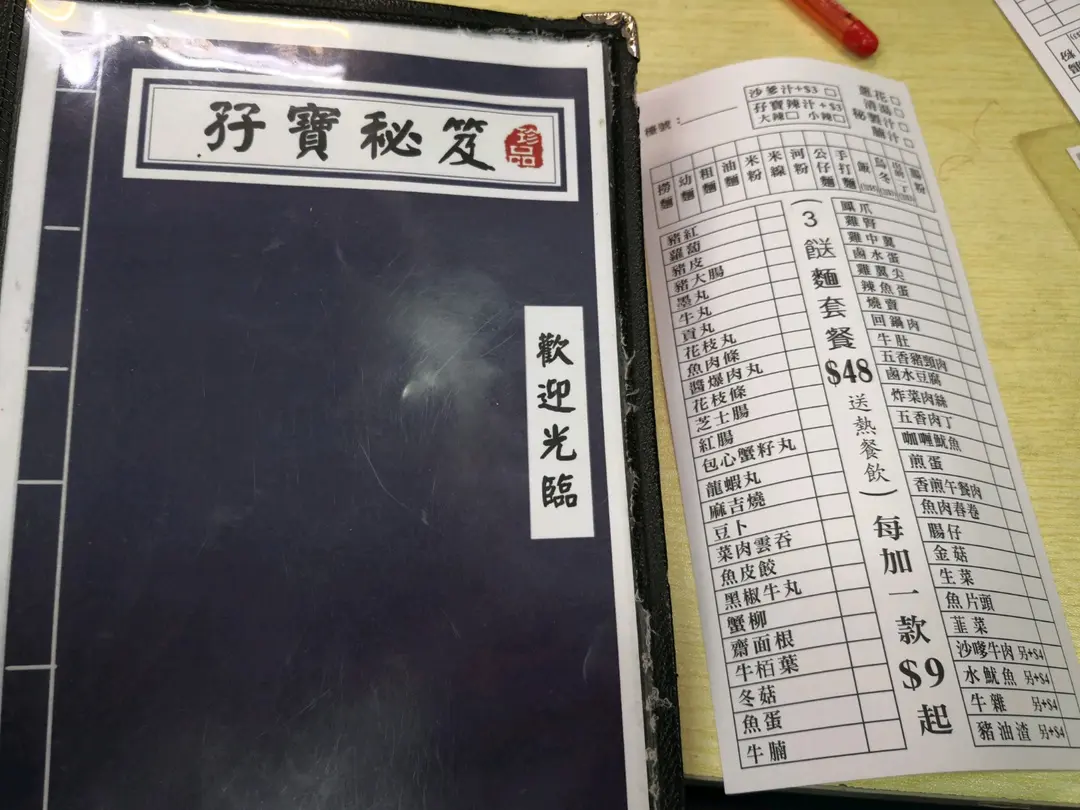 孖寶秘笈
珍品
歡迎光臨
檯號:
沙爹汁+$3
孖寶辣汁+$3
大辣 小辣
蓮花
清湯
秘製汁
腩汁
撈麵
幼麵
粗麵
油麵
米粉
米線
河粉
公仔麵
手打麵
飯
烏冬
出前一丁
腸粉
豬紅
蘿蔔
豬皮
豬大腸
墨丸
牛丸
貢丸
花枝丸
魚肉條
醬爆肉丸
花枝條
芝士腸
紅腸
包心蟹籽丸
龍蝦丸
麻吉燒
豆卜
菜肉雲吞
魚皮餃
黑椒牛丸
蟹柳
齋面根
牛栢葉
冬菇
魚蛋
牛腩
(3餸麵套餐$48送熱餐飲)每加一款$9起
鳳爪
雞腎
雞中翼
鹵水蛋
雞翼尖
辣魚蛋
燒賣
回鍋肉
牛肚
五香豬頸肉
鹵水豆腐
炸菜肉絲
五香肉丁
咖喱魷魚
煎蛋
香煎午餐肉
魚肉春卷
腸仔
金菇
生菜
魚片頭
韮菜
沙嗲牛肉 另+$4
水魷魚 另+$4
牛雜 另+$4
豬油渣 另+$4